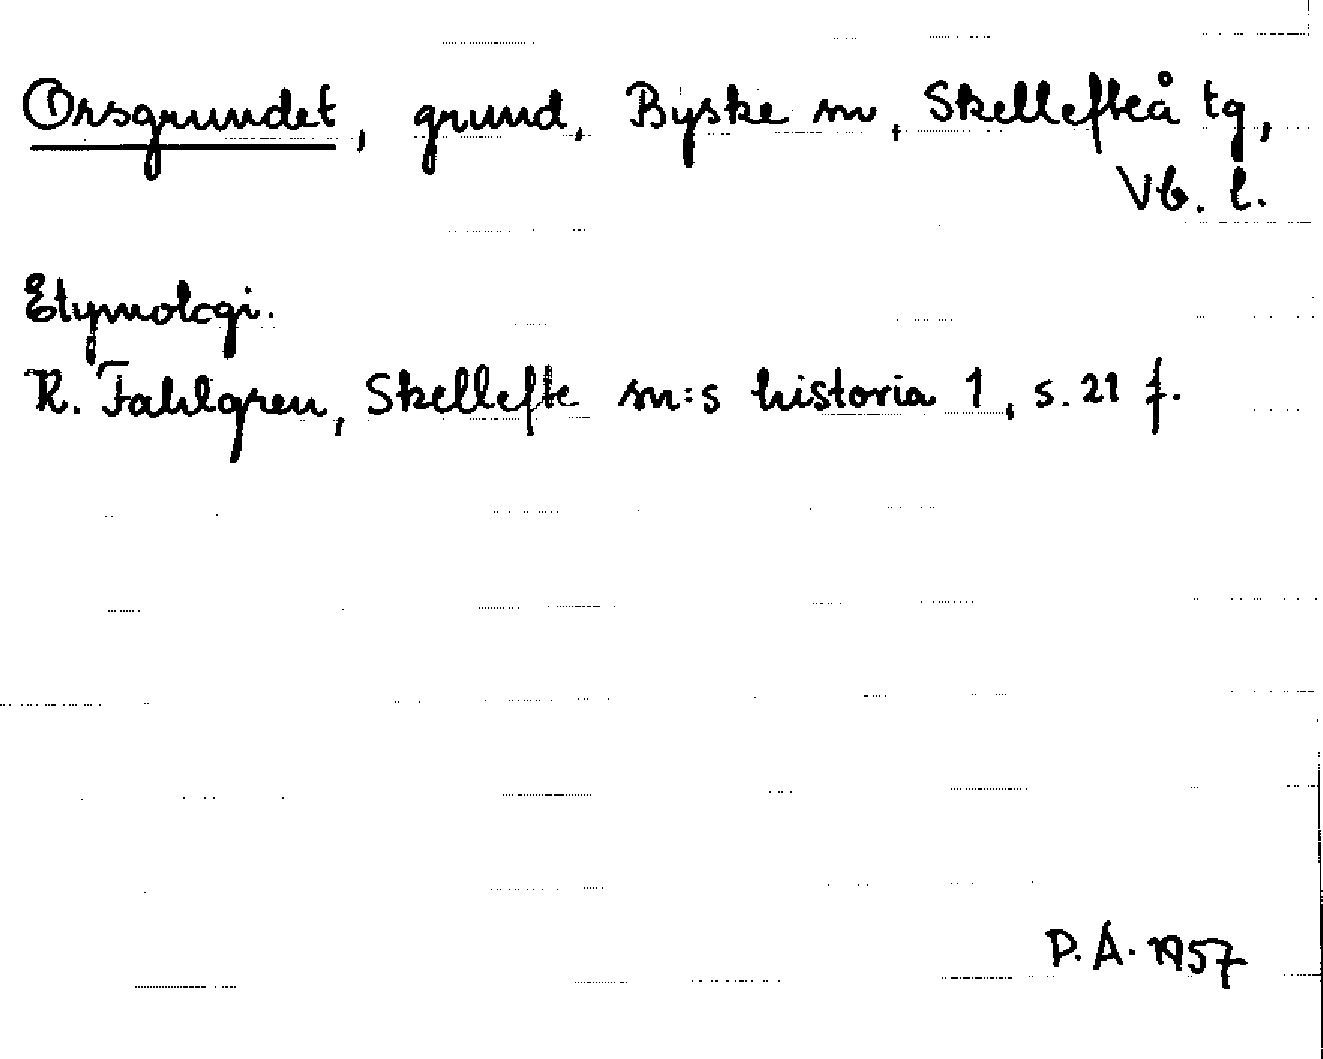 Orsgrundet, grund, Byske sn, Skellefteå tg,
Vb. l.
Etymologi.
K. Fahlgren, Skellefte sn:s historia 1, s. 21 f.
P. A. 1957